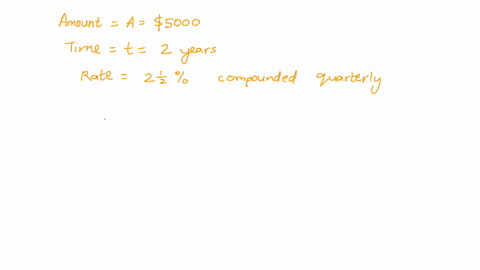 Amount = A = $5000
Time = t = 2 years
Rate = 2 1/2 % compounded quarterly